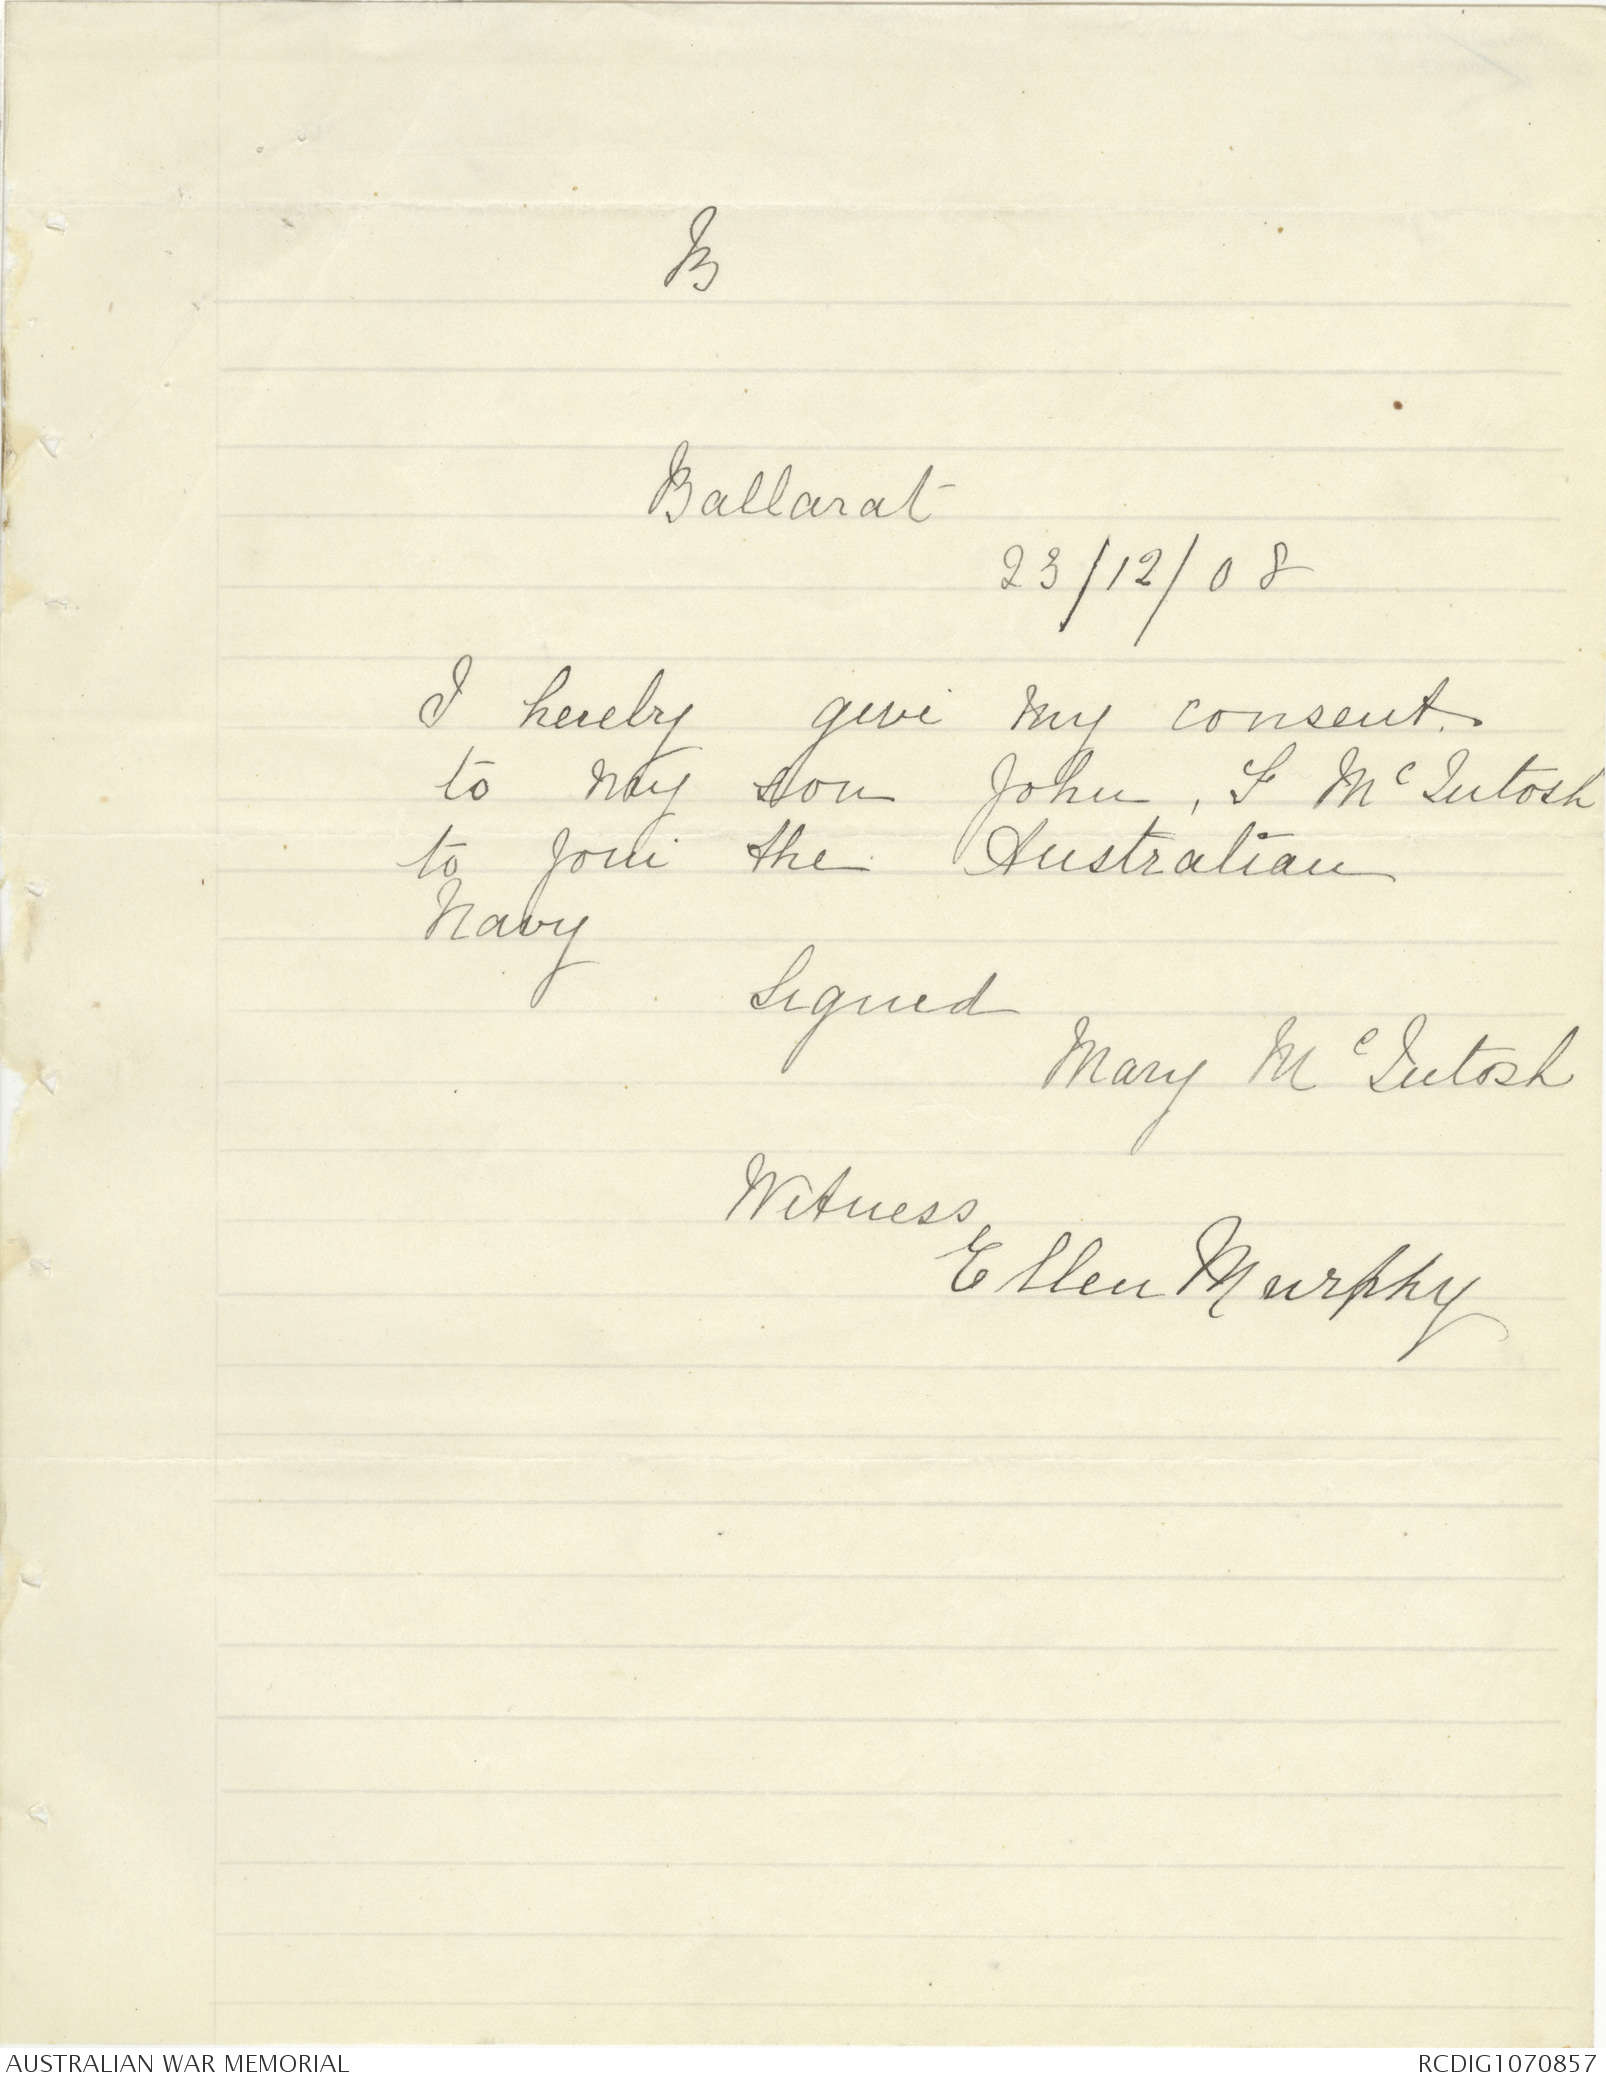 B
Ballarat
23/12/08
I hereby give my consent.
to my son John, F McIntosh
to join the Australian
Navy
Signed
Mary McIntosh
Witness
Ellen Murphy
AUSTRALIAN WAR MEMORIAL
RCDIG1070857